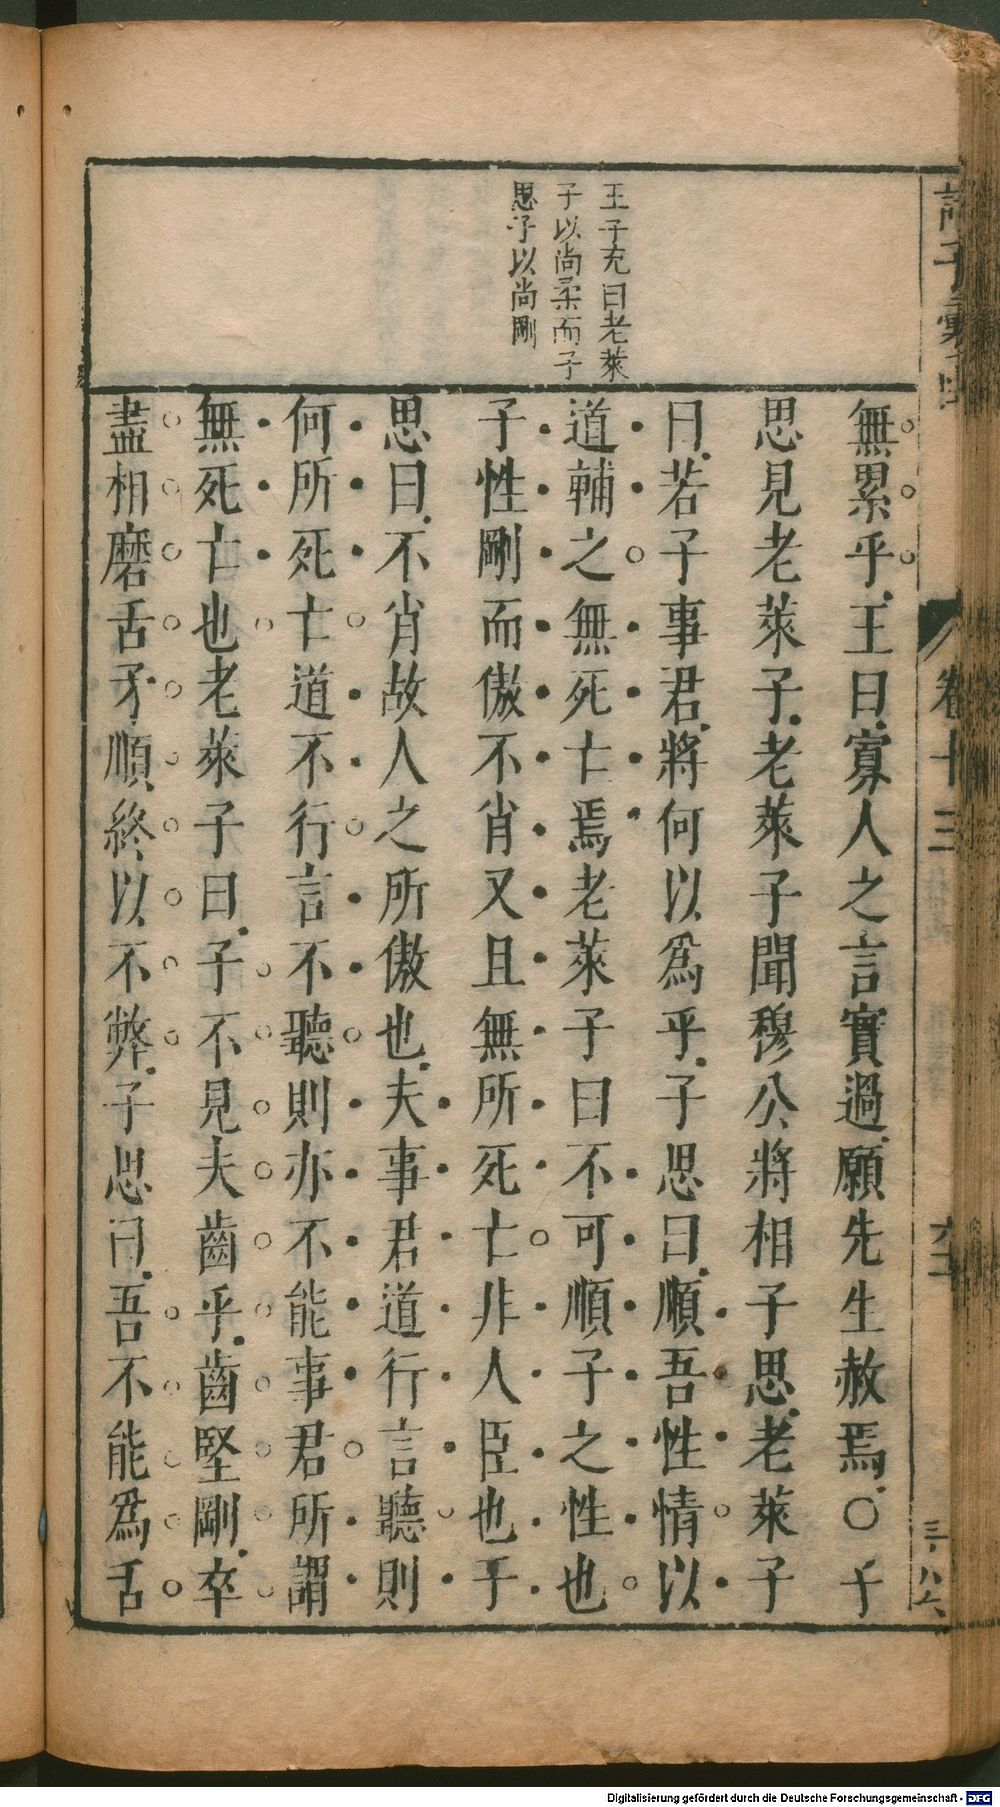 王子充曰老萊
子以尚柔而子
思子以尚剛
無累乎王曰寡人之言實過願先生赦焉〇子
思見老萊子老萊子聞穆公將相子思老萊子
曰若子事君將何以爲乎子思曰順吾性情以
道輔之無死亡焉老萊子曰不可順子之性也
子性剛而傲不肖又且無所死亡非人臣也子
思曰不肖故人之所傲也夫事君道行言聽則
何所死亡道不行言不聽則亦不能事君所謂
無死亡也老萊子曰子不見夫齒乎齒堅剛卒
盡相磨舌柔順終以不弊子思曰吾不能爲舌
卷十三
Digitalisierung gefördert durch die Deutsche Forschungsgemeinschaft - DFG